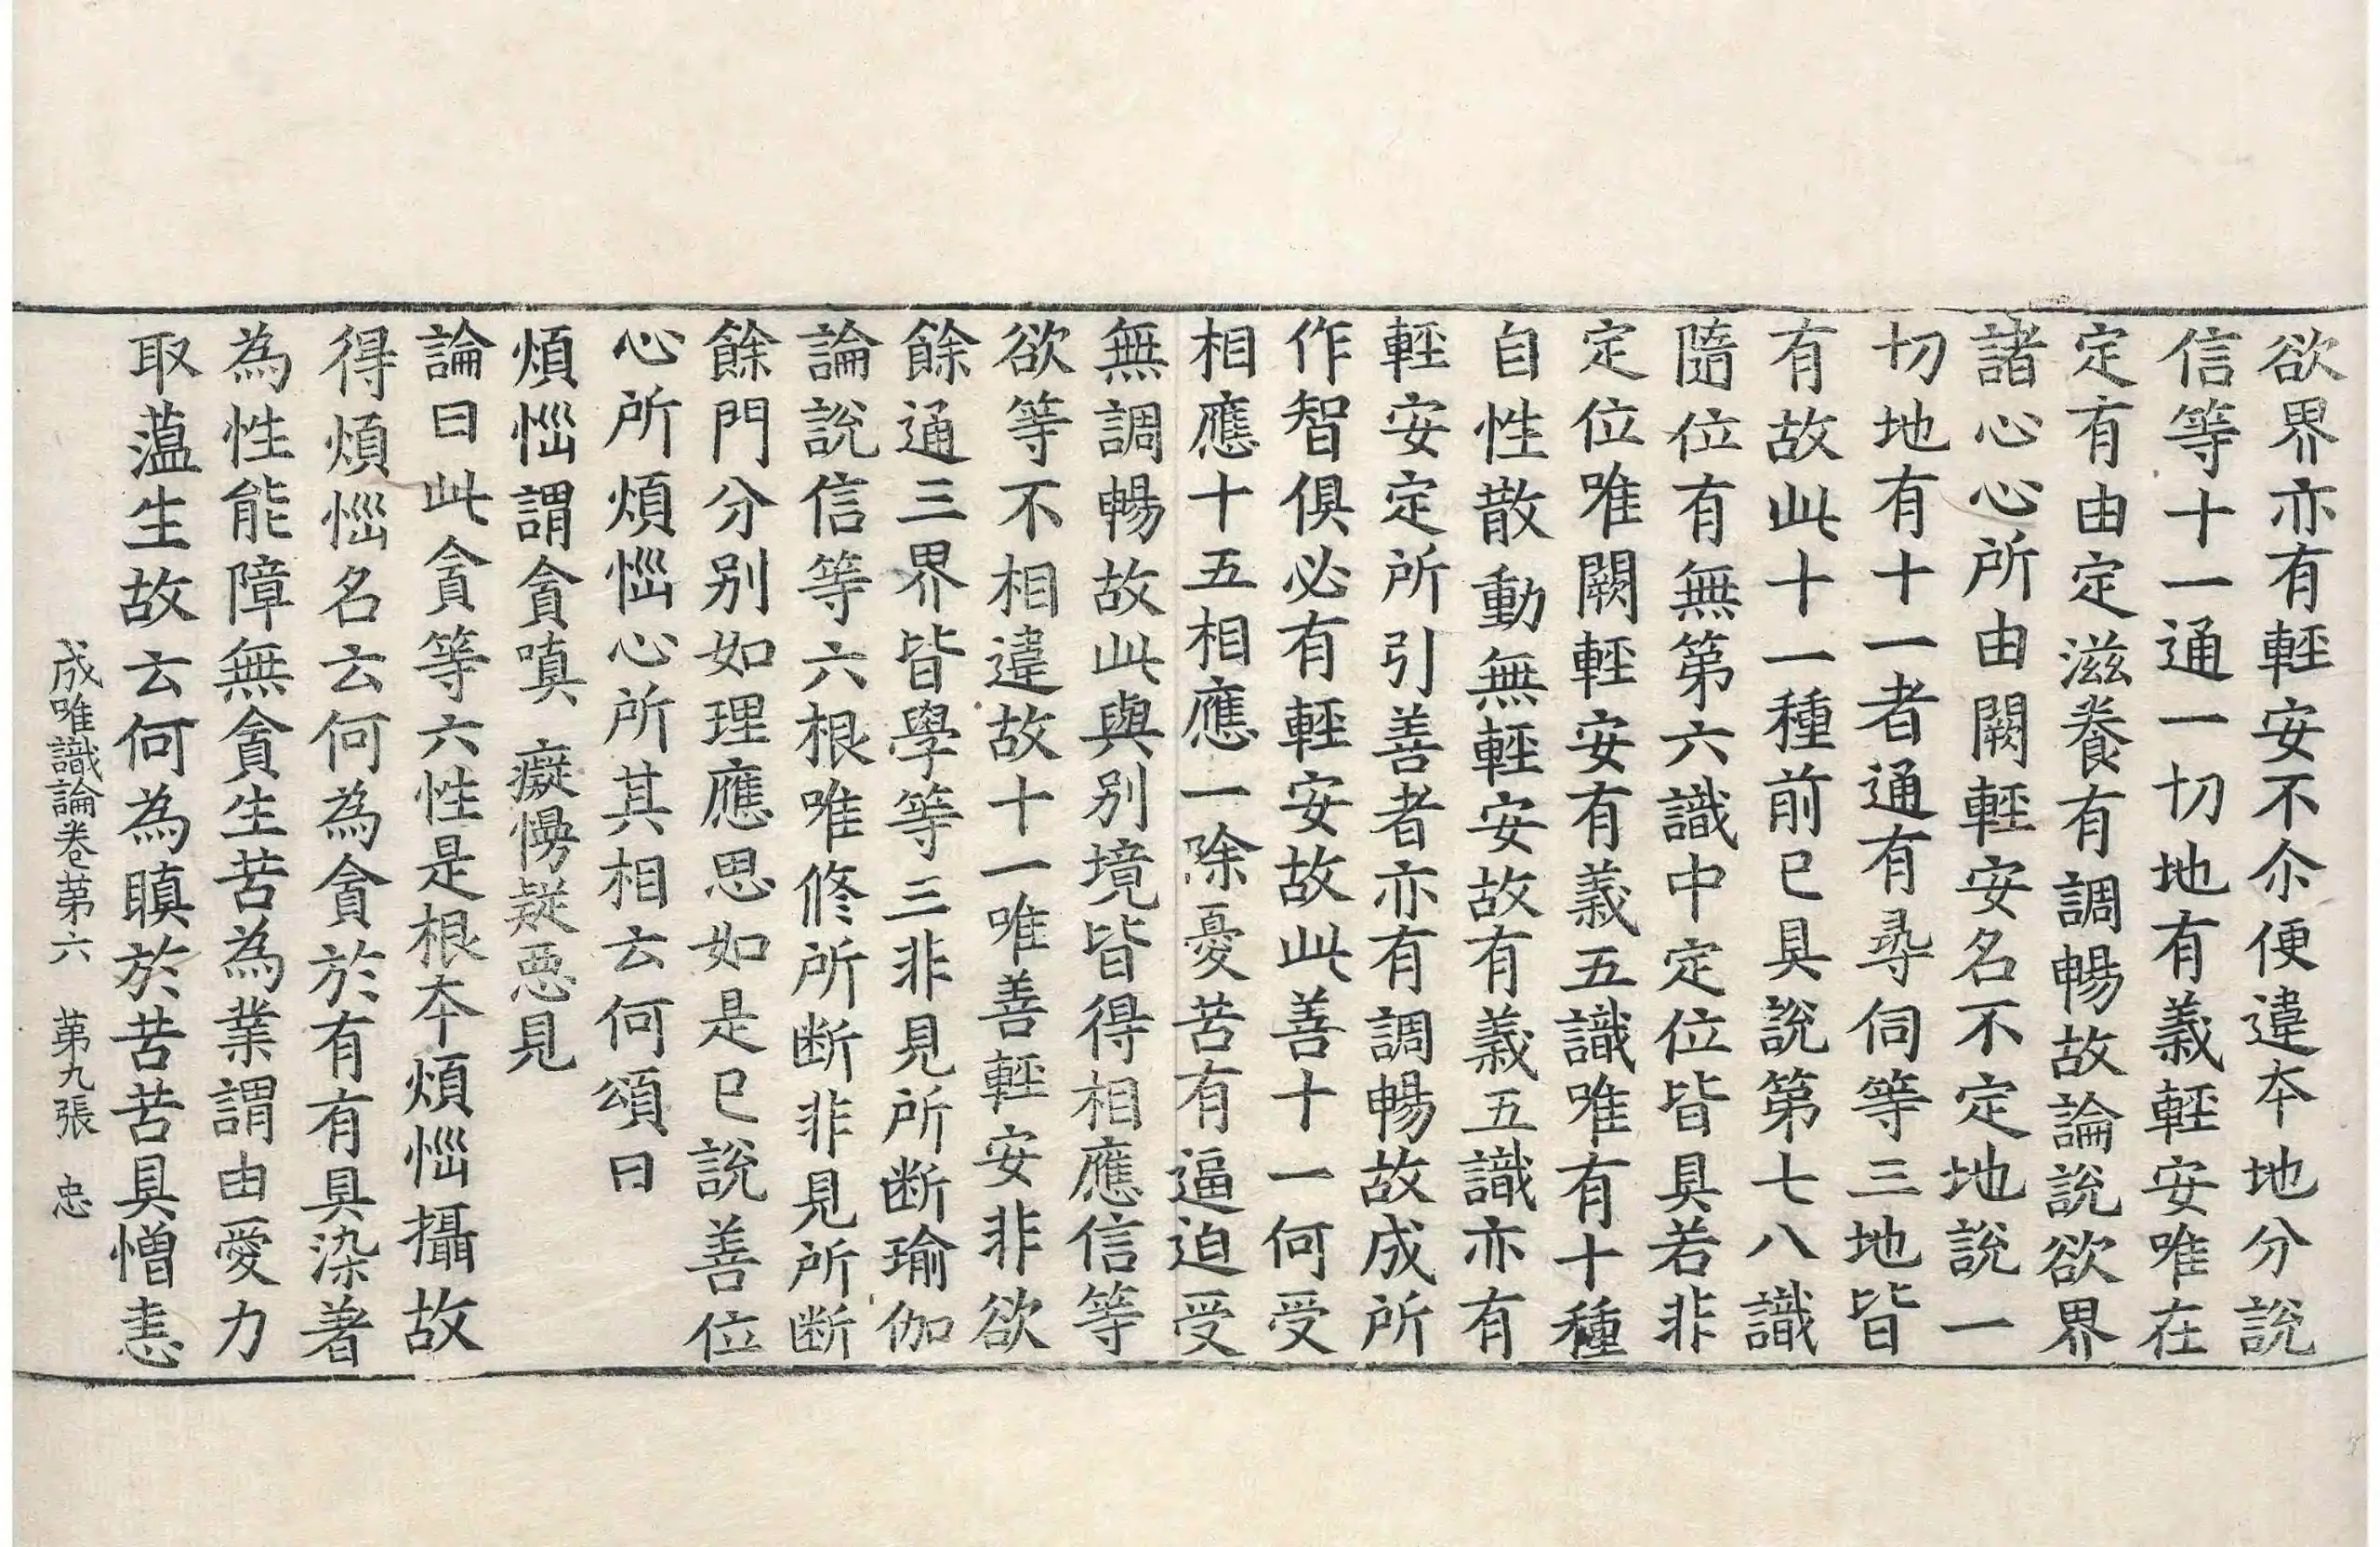 欲界亦有輕安不尒便違本地分說
信等十一通一切地有義輕安唯在
定有由定滋養有調暢故論說欲界
諸心心所由闕輕安名不定地說一
切地有十一者通有尋伺等三地皆
有故此十一種前已具說第七八識
隨位有無第六識中定位皆具若非
定位唯闕輕安有義五識唯有十種
自性散動無輕安故有義五識亦有
輕安定所引善者亦有調暢故成所
作智俱必有輕安故此善十一何受
相應十五相應一除憂苦有逼迫受
無調暢故此與別境皆得相應信等
欲等不相違故十一唯善輕安非欲
餘通三界皆學等三非見所断瑜伽
論說信等六根唯修所断非見所断
餘門分別如理應思如是已說善位
心所煩惱心所其相云何頌曰
煩惱謂貪嗔 癡慢疑惡見
論曰此貪等六性是根本煩惱攝故
得煩惱名云何為貪於有有具染著
為性能障無貪生苦為業謂由愛力
取蕰生故云何為瞋於苦苦具憎恚
成唯識論卷第六 第九張 忠